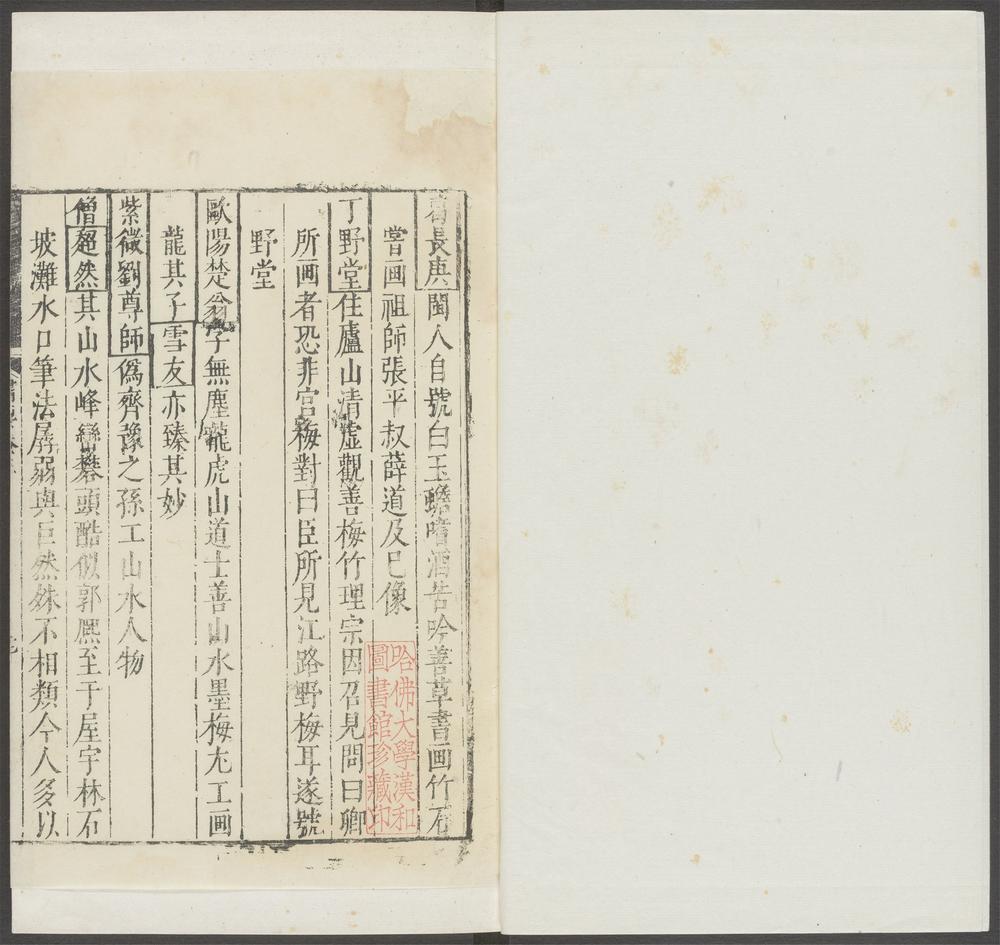 葛長庚閩人自號白玉蟾嗜酒苦吟善草書画竹石
嘗画祖師張平叔薛道及巳像
丁野堂住廬山清虛觀善梅竹理宗因召見問曰卿
所画者恐非宫梅對曰臣所見江路野梅耳遂號
野堂
歐陽楚翁字無塵龍虎山道士善山水墨梅尢工画
龍其子雪友亦臻其妙
紫微劉尊師僞齊豫之孫工山水人物
僧超然其山水峰巒礬頭酷似郭熈至于屋宇林石
坡灘水口筆法孱弱與巨然殊不相類今人多以
哈佛大學漢和
圖書館珍藏印